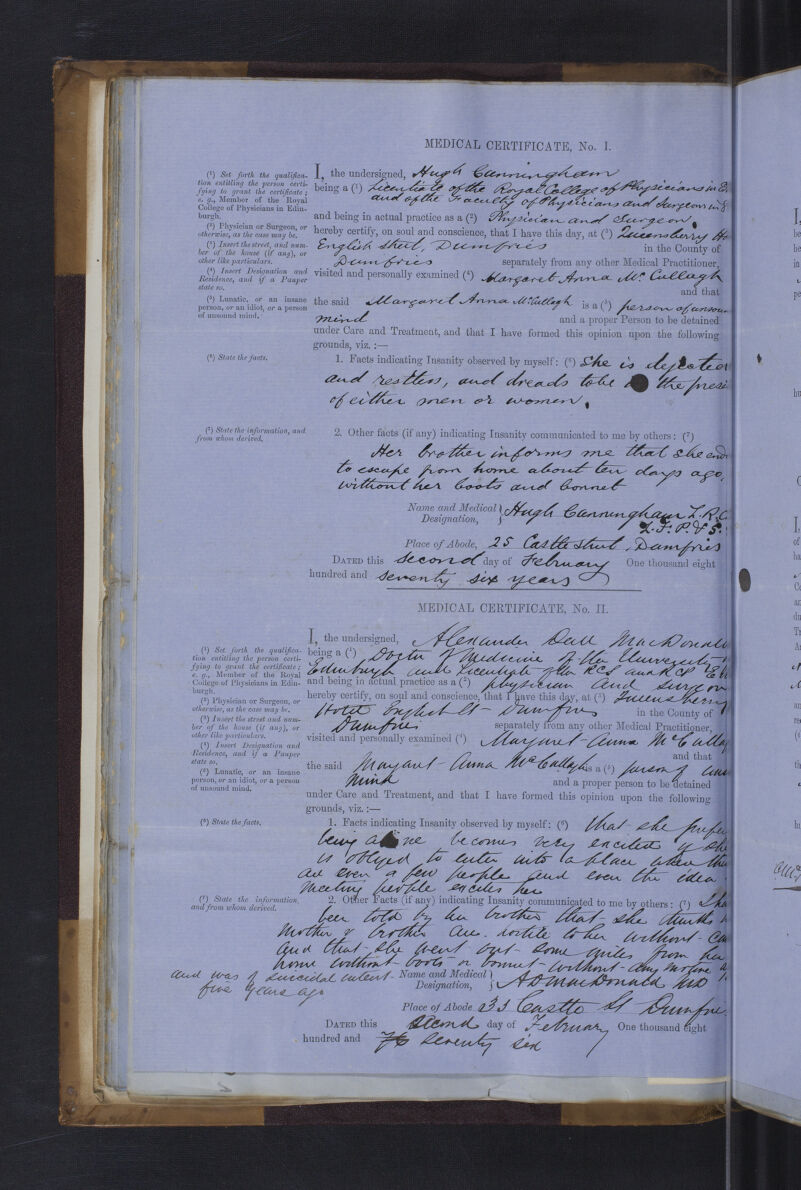 MEDICAL CERTIFICATE, No. I.
(¹) Set forth the qualifica-
tion entitling the person certi-
fying to grant the certificate;
e. g., Member of the Royal
College of Physicians in Edin-
burgh.
(²) Physician or Surgeon, or
otherwise, as the case may be.
(³) Insert the street, and num-
ber of the house (if any), or
other like particulars.
(⁴) Insert Designation and
Residence, and if a Pauper
state so.
(⁵) Lunatic, or an insane
person, or an idiot, or a person
of unsound mind.
I, the undersigned, Hugh Cunningham
being a (¹) Licentiate of the Royal College of Physicians in
and of the Faculty of Physicians and Surgeons in
and being in actual practice as a (²) Physician and Surgeon,
hereby certify, on soul and conscience, that I have this day, at (³) Queensberry
English Street, Dumfries in the County of
Dumfries separately from any other Medical Practitioner,
visited and personally examined (⁴) Margaret Anna McCullagh
and that
the said Margaret Anna McCullagh is a (⁵) person of
mind and a proper Person to be detained
under Care and Treatment, and that I have formed this opinion upon the following
grounds, viz. :—
(⁶) State the facts.
1. Facts indicating Insanity observed by myself: (⁶) She is dejected
and restless, and dreads to be the
of either men or women.
(⁷) State the information, and
from whom derived.
2. Other facts (if any) indicating Insanity communicated to me by others: (⁷)
Her brother informs me that she
to escape from home about ten days ago,
without her boots and bonnet
Name and Medical
Designation,
Hugh Cunningham L.R.C
L.F.P. & S.
Place of Abode, 25 Castle Street, Dumfries
DATED this second day of February One thousand eight
hundred and seventy six years
MEDICAL CERTIFICATE, No. II.
(¹) Set forth the qualifica-
tion entitling the person certi-
fying to grant the certificate;
e. g., Member of the Royal
College of Physicians in Edin-
burgh.
(²) Physician or Surgeon, or
otherwise, as the case may be.
(³) Insert the street and num-
ber of the house (if any), or
other like particulars.
(⁴) Insert Designation and
Residence, and if a Pauper
state so.
(⁵) Lunatic, or an insane
person, or an idiot, or a person
of unsound mind.
I, the undersigned, Alexander Dall MacDonald
being a (¹) Doctor of Medicine of the University
Edinburgh and Licentiate of the RCS and RCP
and being in actual practice as a (²) physician and surgeon
hereby certify, on soul and conscience, that I have this day, at (³) Queensberry
Hotel English St Dumfries in the County of
Dumfries separately from any other Medical Practitioner,
visited and personally examined (⁴) Margaret Anna
and that
the said Margaret Anna McCullagh is a (⁵) person of
mind and a proper person to be detained
under Care and Treatment, and that I have formed this opinion upon the following
grounds, viz. :—
(⁶) State the facts.
1. Facts indicating Insanity observed by myself: (⁶) that she
being alone becomes very excited if she
is obliged to enter into a place where
are even a few people and even the idea
meeting people excites her
(⁷) State the information,
and from whom derived.
2. Other Facts (if any) indicating Insanity communicated to me by others: (⁷)
been told by her brother that she thinks
mother & brother are hostile to her without
and that she went out some miles from her
home without boots or bonnet without any motive
and was of suicidal intent
five years ago
Name and Medical
Designation,
A D MacDonald MD
Place of Abode 33 Castle St
DATED this second day of February One thousand eight
hundred and seventy six